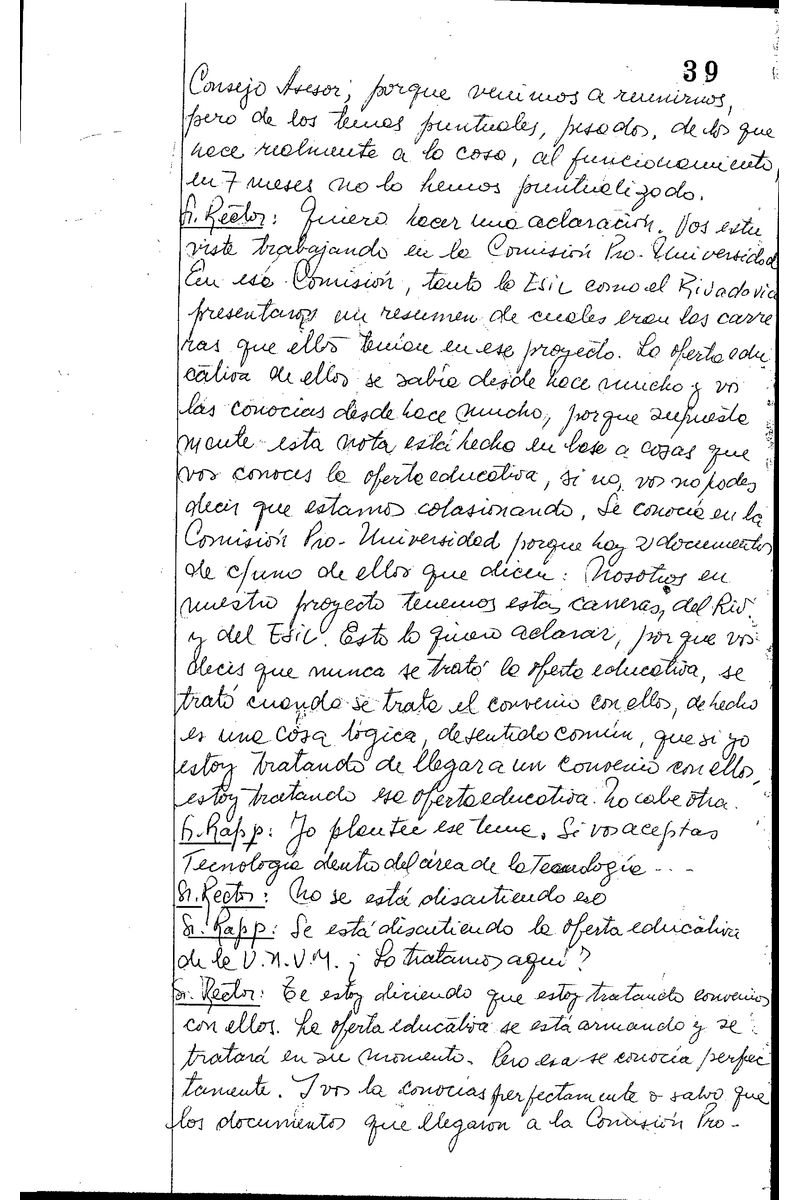 39
Consejo Asesor; porque venimos a reunirnos,
pero de los temas puntuales, pesados, de los que
hace realmente a la cosa, al funcionamiento,
en 7 meses no lo hemos puntualizado.
Sr. Rector: Quiero hacer una aclaración. Vos estu
viste trabajando en la Comisión Pro-Universidad
En esa Comisión, tanto la ESIL como el Rivadavia
presentaron un resumen de cuales eran las carre
ras que ellos tenían en ese proyecto. La oferta edu
cativa de ellos se sabía desde hace mucho y vos
las conocías desde hace mucho, porque supuesta
mente esta nota está hecha en base a cosas que
vos conoces la oferta educativa, si no, vos no podes
decir que estamos colasionando. Se conocía en la
Comisión Pro-Universidad porque hay 2 documentos
de c/uno de ellos que dicen: Nosotros en
nuestro proyecto tenemos estas carreras, del Riv.
y del ESIL. Esto lo quiero aclarar, porque vos
decis que nunca se trató la oferta educativa, se
trató cuando se trata el convenio con ellos, de hecho
es una cosa lógica, de sentido común, que si yo
estoy tratando de llegar a un convenio con ellos,
estoy tratando esa oferta educativa. No cabe otra.
Sr. Rapp: Yo plantee ese tema. Si vos aceptas
Tecnología dentro del área de la Tecnología ---
Sr. Rector: No se está discutiendo eso
Sr. Rapp: Se está discutiendo la oferta educativa
de la U.N.V.M. ¿ Lo tratamos aquí?
Sr. Rector: Te estoy diciendo que estoy tratando convenios
con ellos. La oferta educativa se está armando y se
tratará en su momento. Pero esa se conocía perfec
tamente. Y vos la conocías perfectamente o salvo que
los documentos que llegaron a la Comisión Pro-